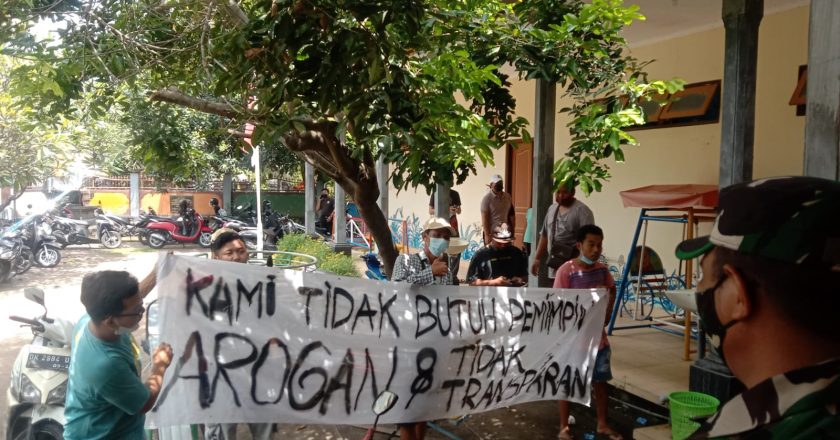 KAMI TIDAK BUTUH PEMIMPIN
AROGAN & TIDAK
TRANSPARAN
DK 2884